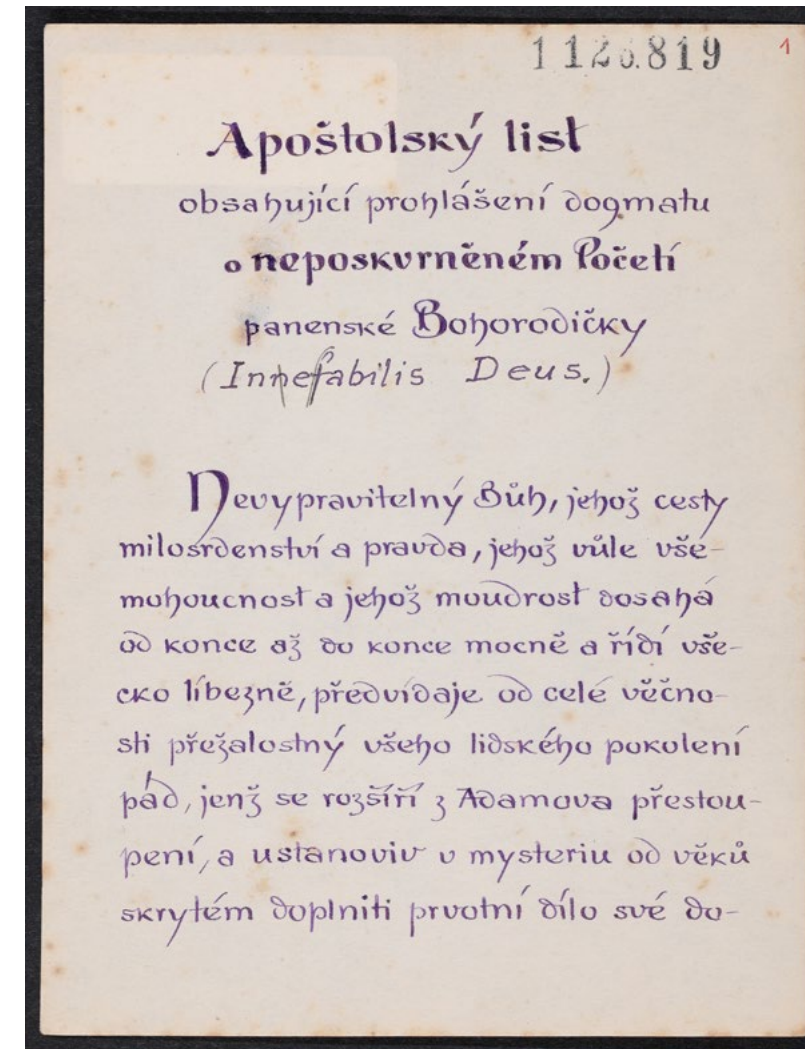 1126.819 1
Apoštolský list
obsahující prohlášení dogmatu
o neposkvrněném Početí
panenské Bohorodičky
(Inneffabilis Deus.)
Nevypravitelný Bůh, jehož cesty
milosrdenství a pravda, jehož vůle vše-
mohoucnost a jehož moudrost dosahá
od konce až do konce mocně a řídí vše-
cko líbezně, předvídaje od celé věčno-
sti přežalostný všeho lidského pokolení
pád, jenž se rozšíří z Adamova přestou-
pení, a ustanoviv v mysteriu od věků
skrytém doplniti prvotní dílo své do-